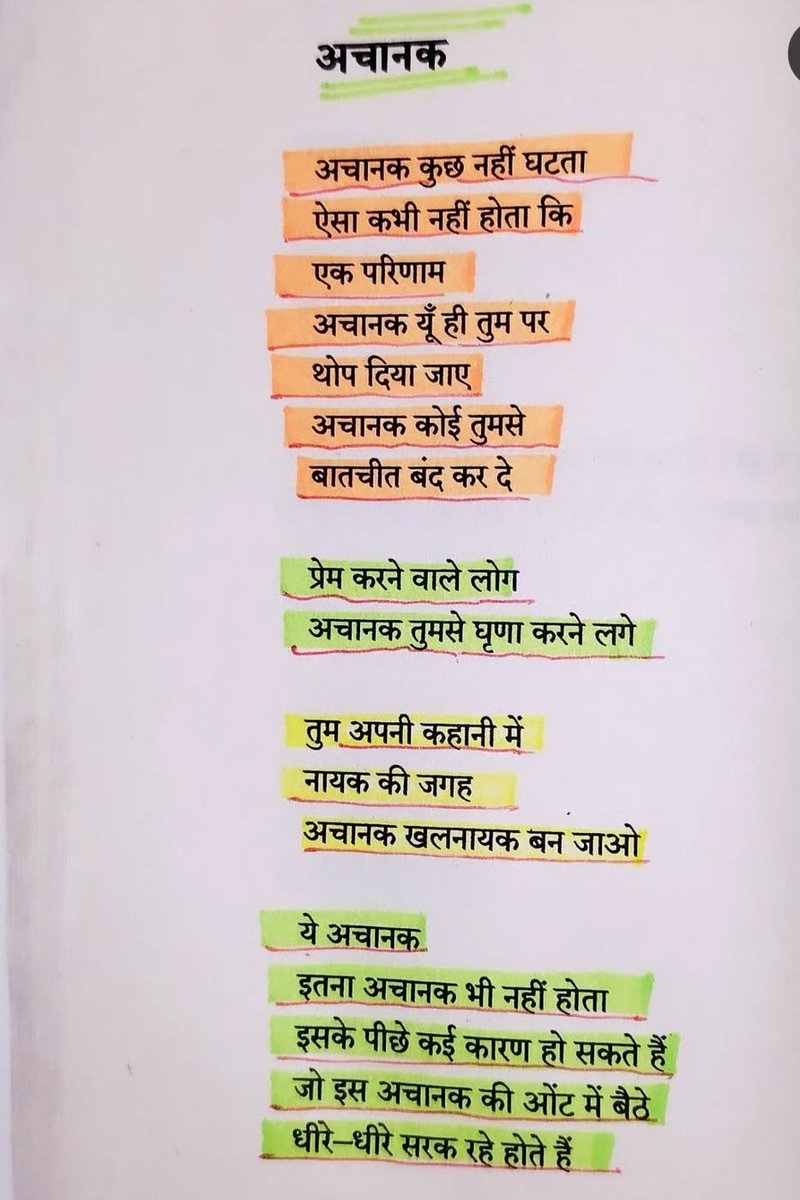 अचानक
अचानक कुछ नहीं घटता
ऐसा कभी नहीं होता कि
एक परिणाम
अचानक यूँ ही तुम पर
थोप दिया जाए
अचानक कोई तुमसे
बातचीत बंद कर दे
प्रेम करने वाले लोग
अचानक तुमसे घृणा करने लगे
तुम अपनी कहानी में
नायक की जगह
अचानक खलनायक बन जाओ
ये अचानक
इतना अचानक भी नहीं होता
इसके पीछे कई कारण हो सकते हैं
जो इस अचानक की ओंट में बैठे
धीरे–धीरे सरक रहे होते हैं